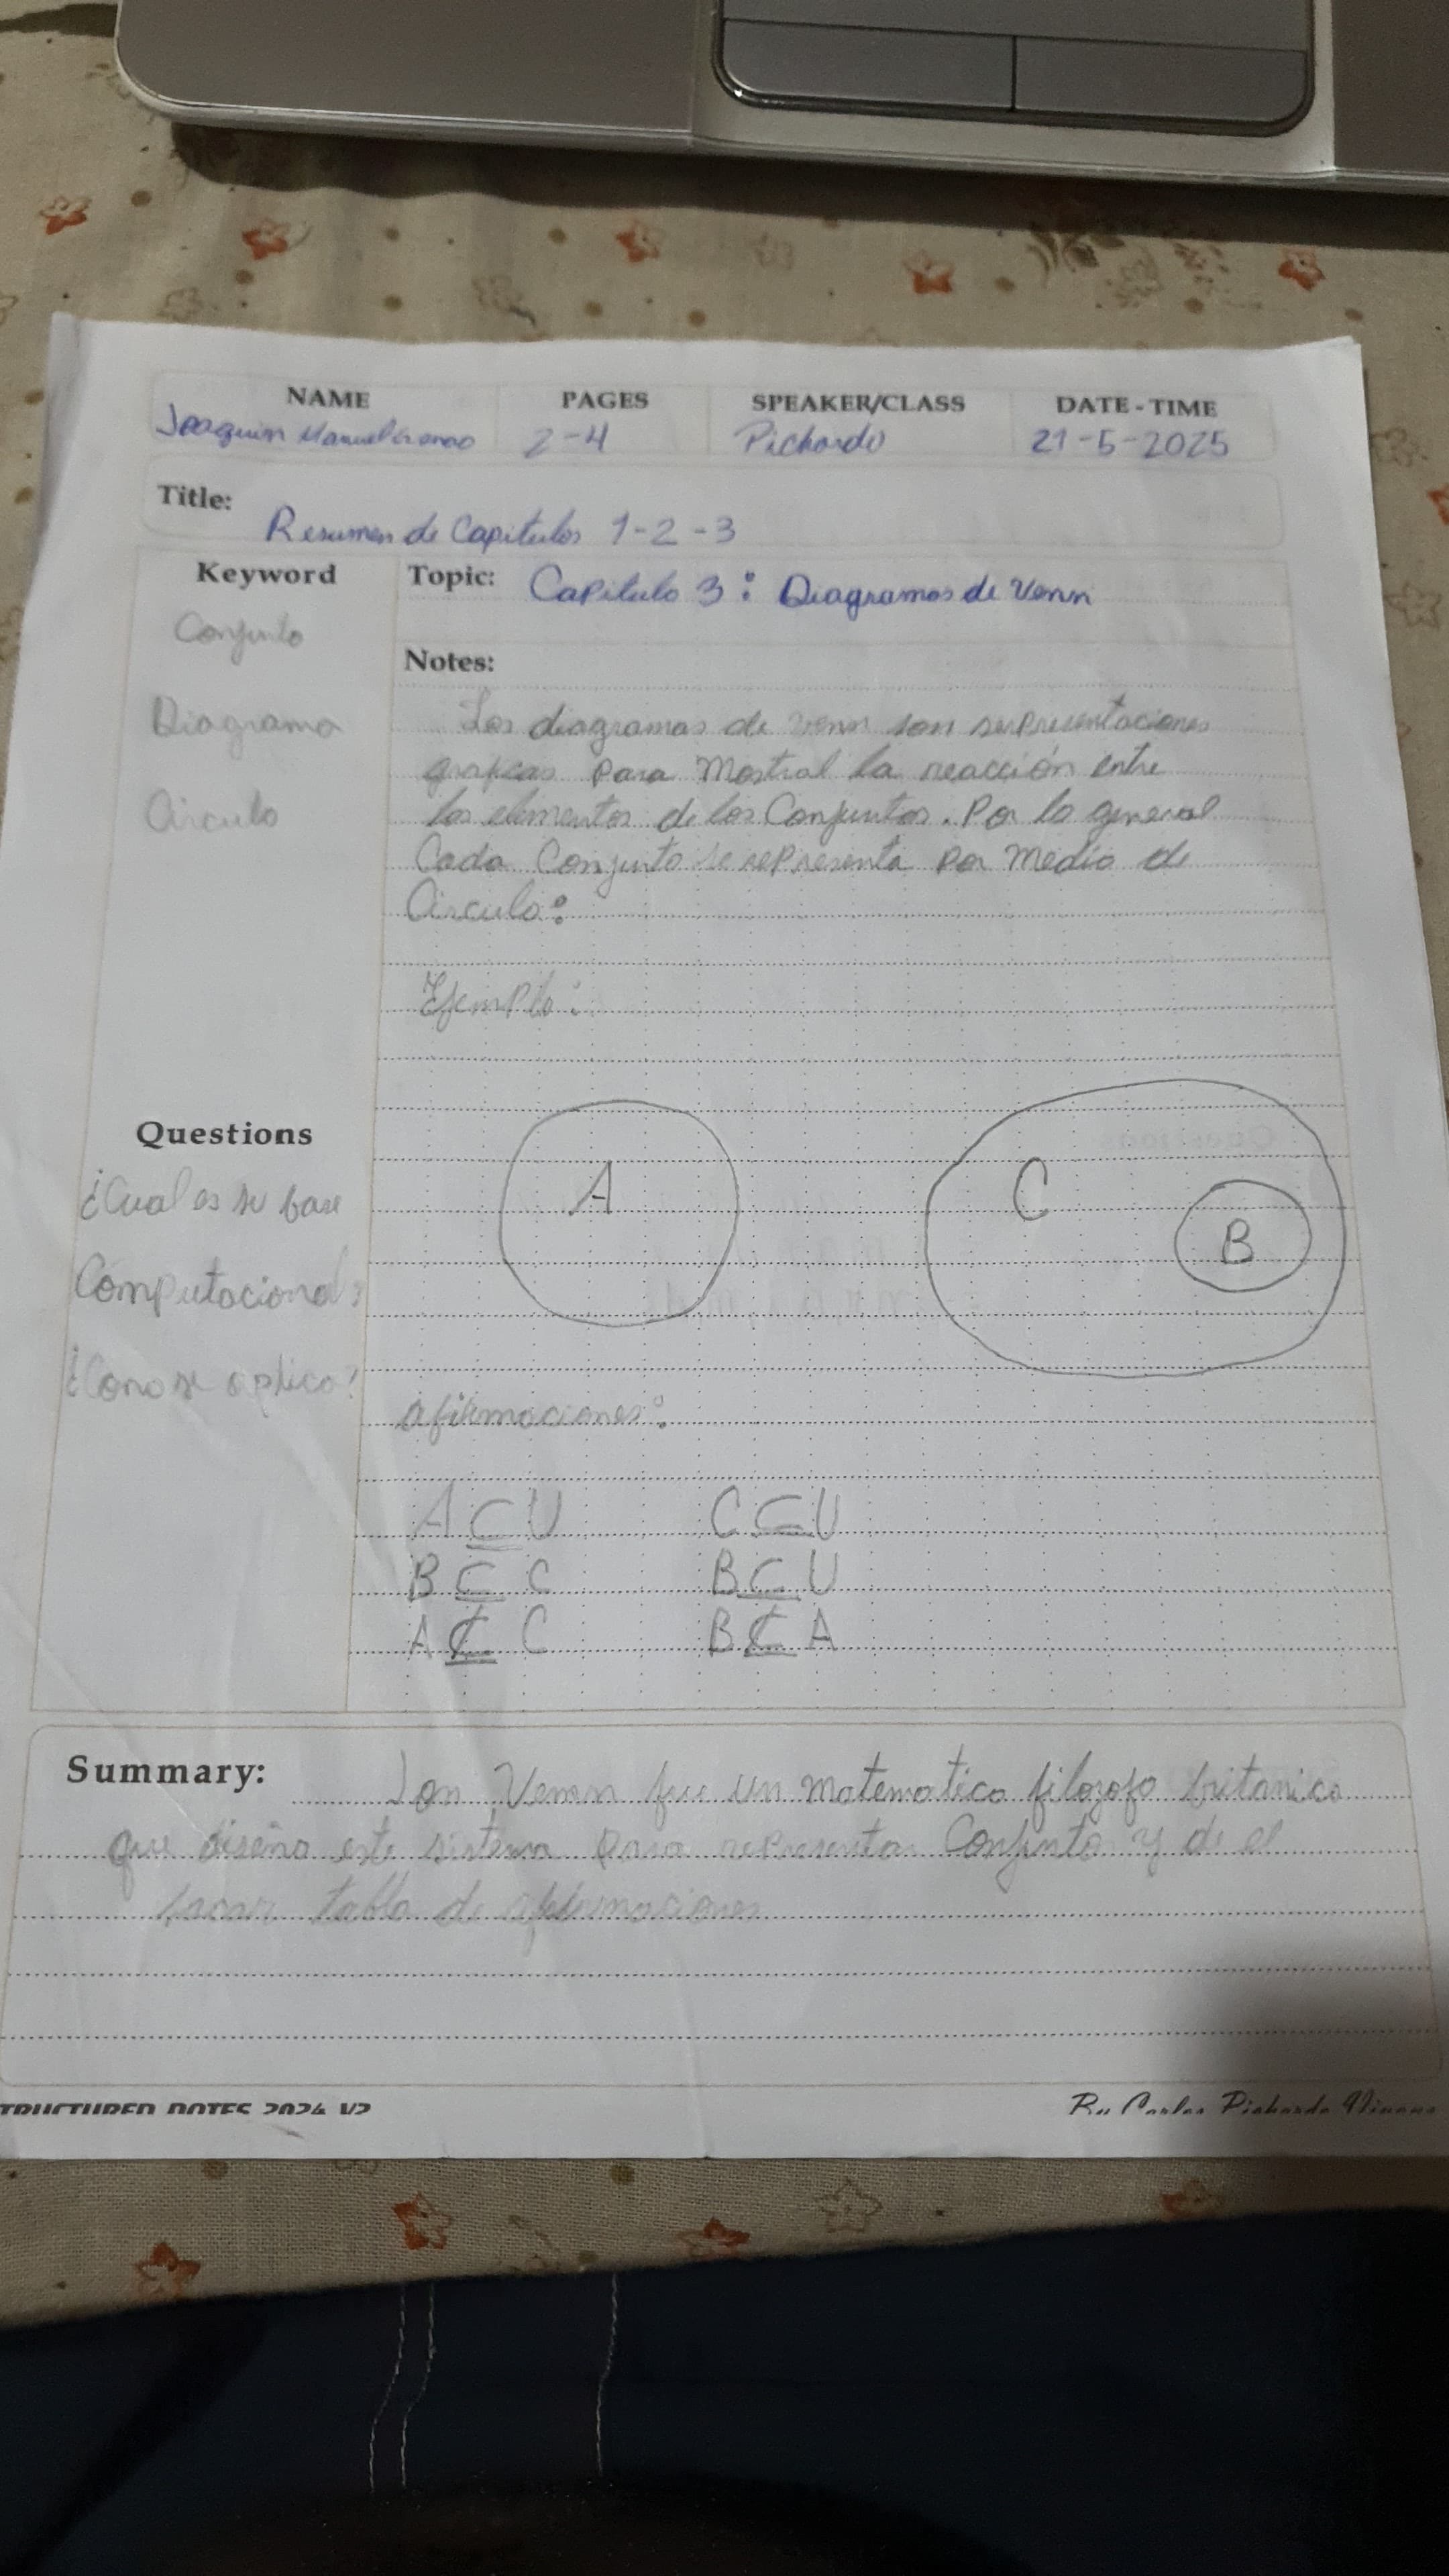 NAME PAGES SPEAKER/CLASS DATE-TIME
Joaquin Manuel 2-4 Pichardo 21-5-2025
Title:
Resumen de Capitulos 1-2-3
Keyword
Topic: Capitulo 3: Diagramas de Venn
Conjunto
Notes:
Diagrama
Los diagramas de venn son representaciones
graficas para Mostral la reacción entre
Circulo
los elementos de los Conjuntos. Por lo general
Cada Conjunto se representa por medio de
Circulo:
Ejemplo:
A
C
B
Questions
¿Cual es su base
Computacional?
¿Como se aplica?
afirmaciones:
A ⊆ U C ⊆ U
B ⊆ C B ⊆ U
A ⊈ C B ⊈ A
Summary: Jon Venn fue un matematico filozofo britanico
que diseño este sistema para representar Conjunto y de el
sacar tabla de afirmaciones
STRUCTURED NOTES 2024 V2
By Carlos Pichardo